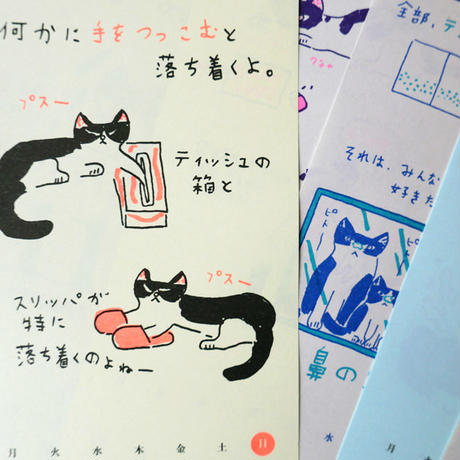 何かに手をつっこむと
落ち着くよ。
プスー
ティッシュの
箱と
プスー
スリッパが
特に
落ち着くのよねー
月 火 水 木 金 土 日
全部、テ
それは、みんな
好きだ
ピト
鼻の
水
月